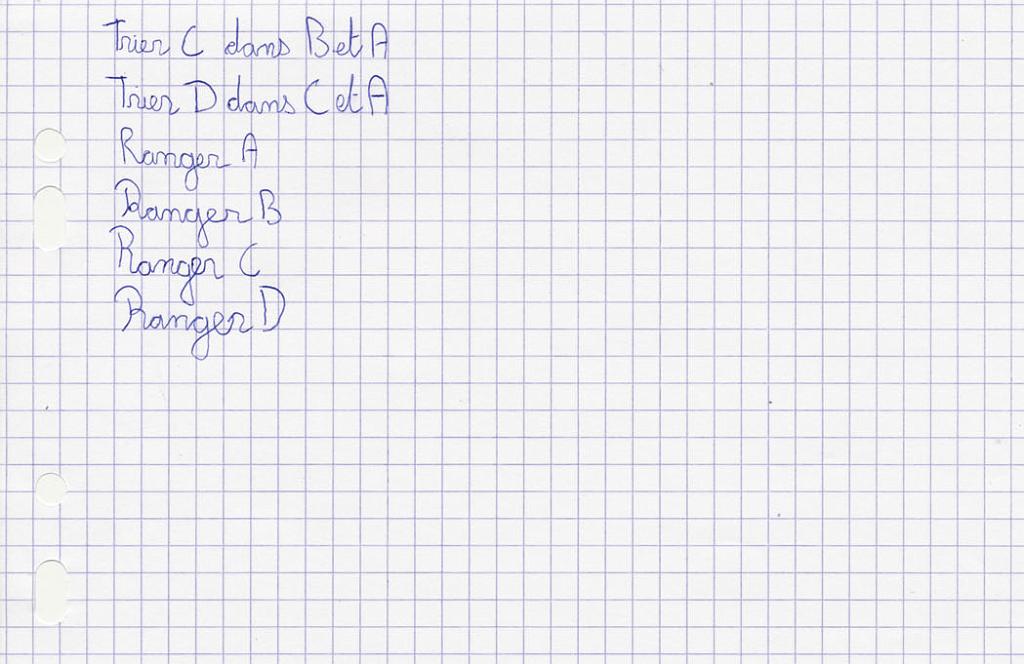 Trier C dans B et A
Trier D dans C et A
Ranger A
Ranger B
Ranger C
Ranger D